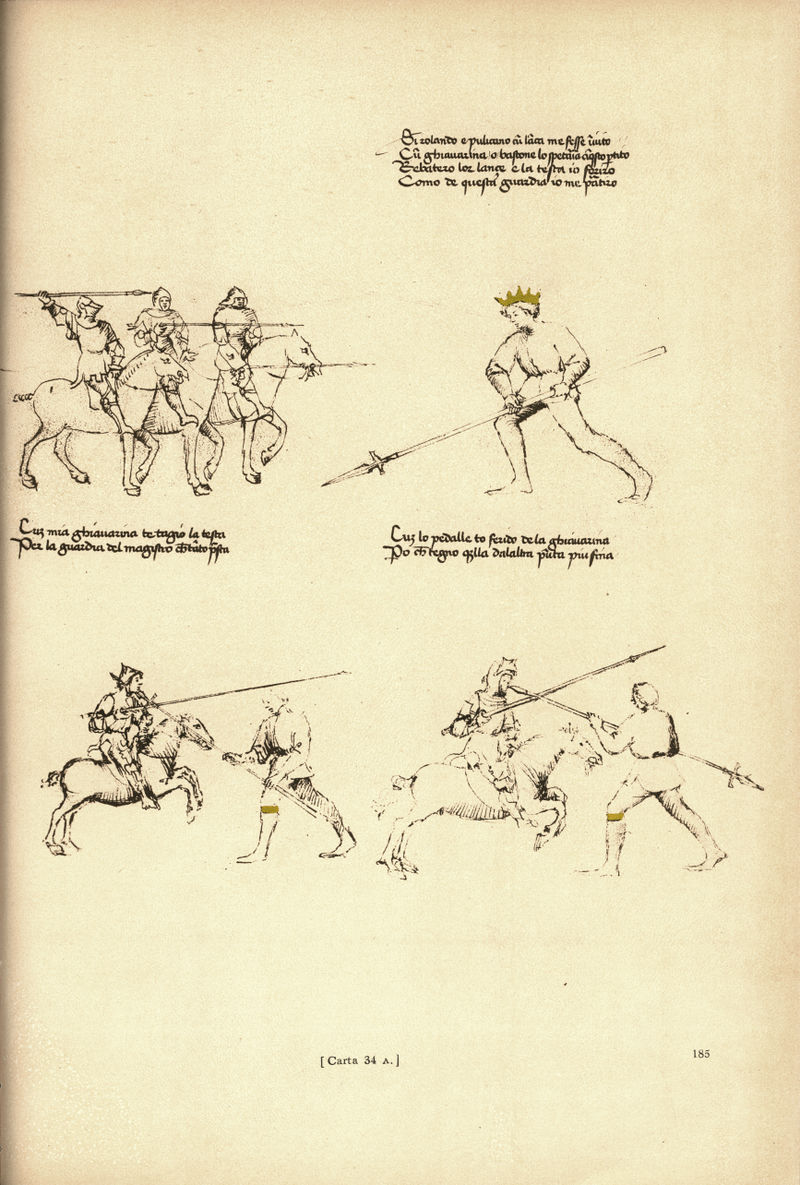 Si rolando e pulicano cū lāca me fesse īuito
Cū ghiauarina o bastone lo spetaria a q̄sto ꝑtito
Rebatero lor lançe e la testa io feriro
Como de questa guardia io me ꝑtiro
Cuȝ mia ghiauarina te tagio la testa
Per la guardia del magistro
Cuȝ lo pedalle to ferido de la ghiauarina
Po ch̄ tegno q̄lla dalaltra pūta piu fina
[Carta 34 A.]
185